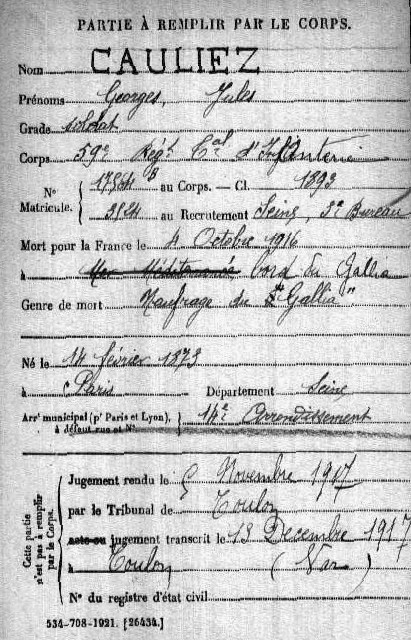 PARTIE À REMPLIR PAR LE CORPS.
Nom CAULIEZ
Prénoms Georges, Jules
Grade soldat
Corps 59e Régt Cal d'Infanterie
N° Matricule. { 17544 B au Corps. — Cl. 1893
3154 au Recrutement Seine, 3e Bureau
Mort pour la France le 4 Octobre 1916
à Mer Méditerranée bord du Gallia
Genre de mort Naufrage du "Gallia"
Né le 14 février 1873
à Paris Département Seine
Arrt municipal (pr Paris et Lyon), à défaut rue et N° } 14e Arrondissement
Cette partie n'est pas à remplir par le Corps.
Jugement rendu le Novembre 1917
par le Tribunal de Toulon
acte ou jugement transcrit le 13 Decembre 1917
à Toulon (Var)
N° du registre d'état civil
534-708-1921. [26434.]